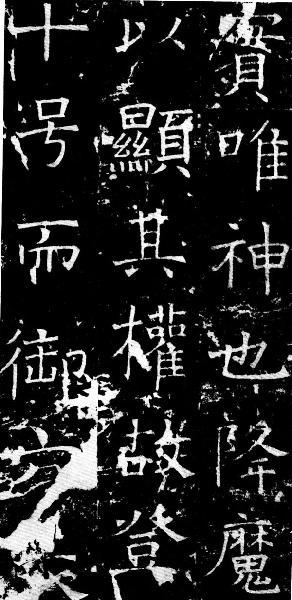 賓唯神也降魔
以顯其權故登
十号而御